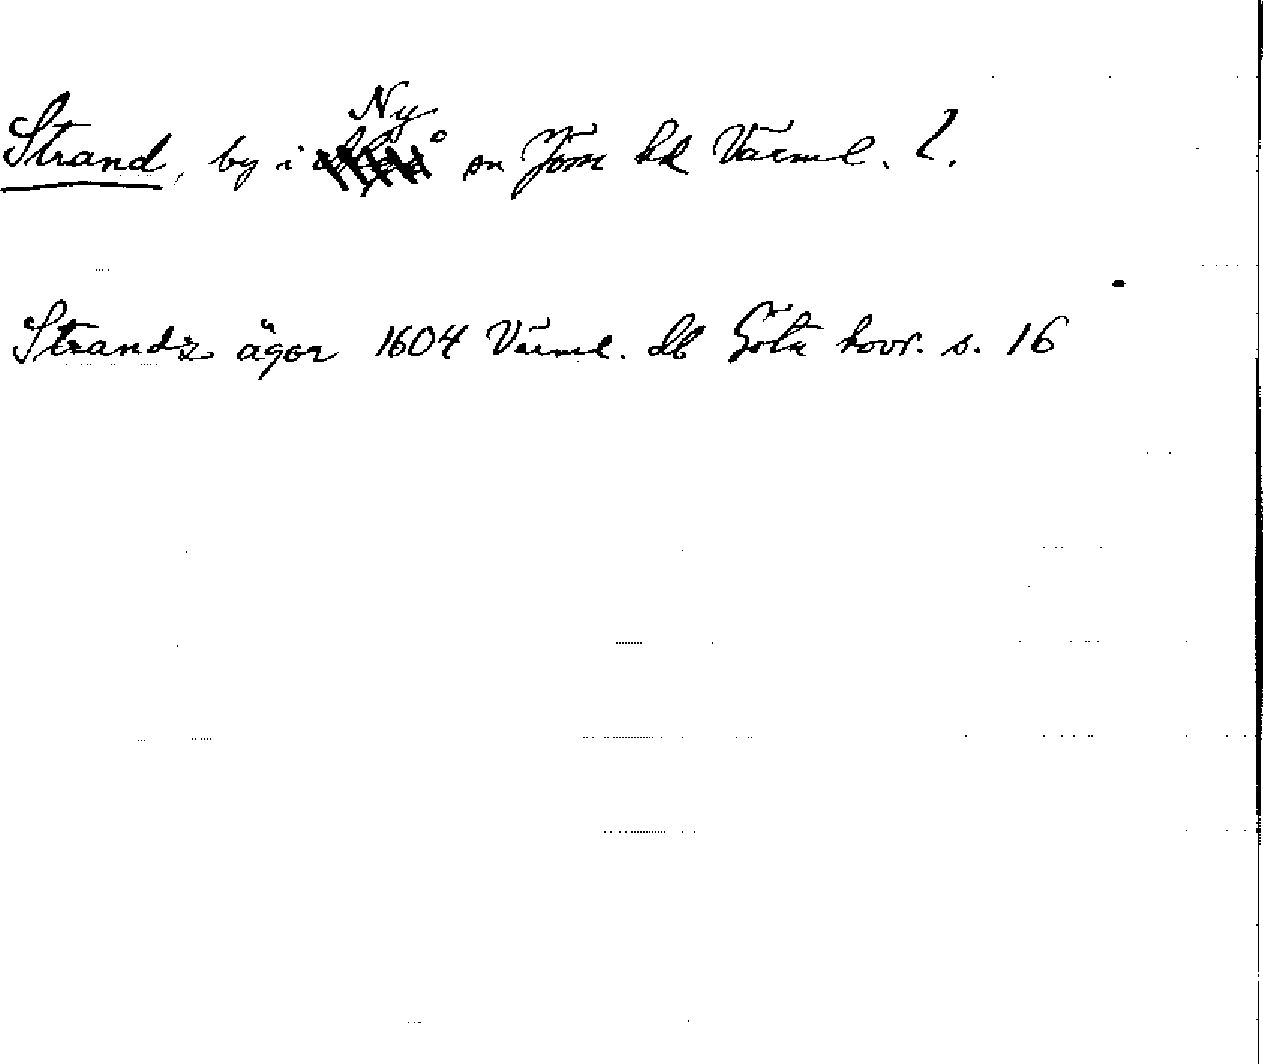 Strand, by i Ny sn Jösse hd Värml. l.
Strandz ägor 1604 Värml. db Göta hovr. s. 16